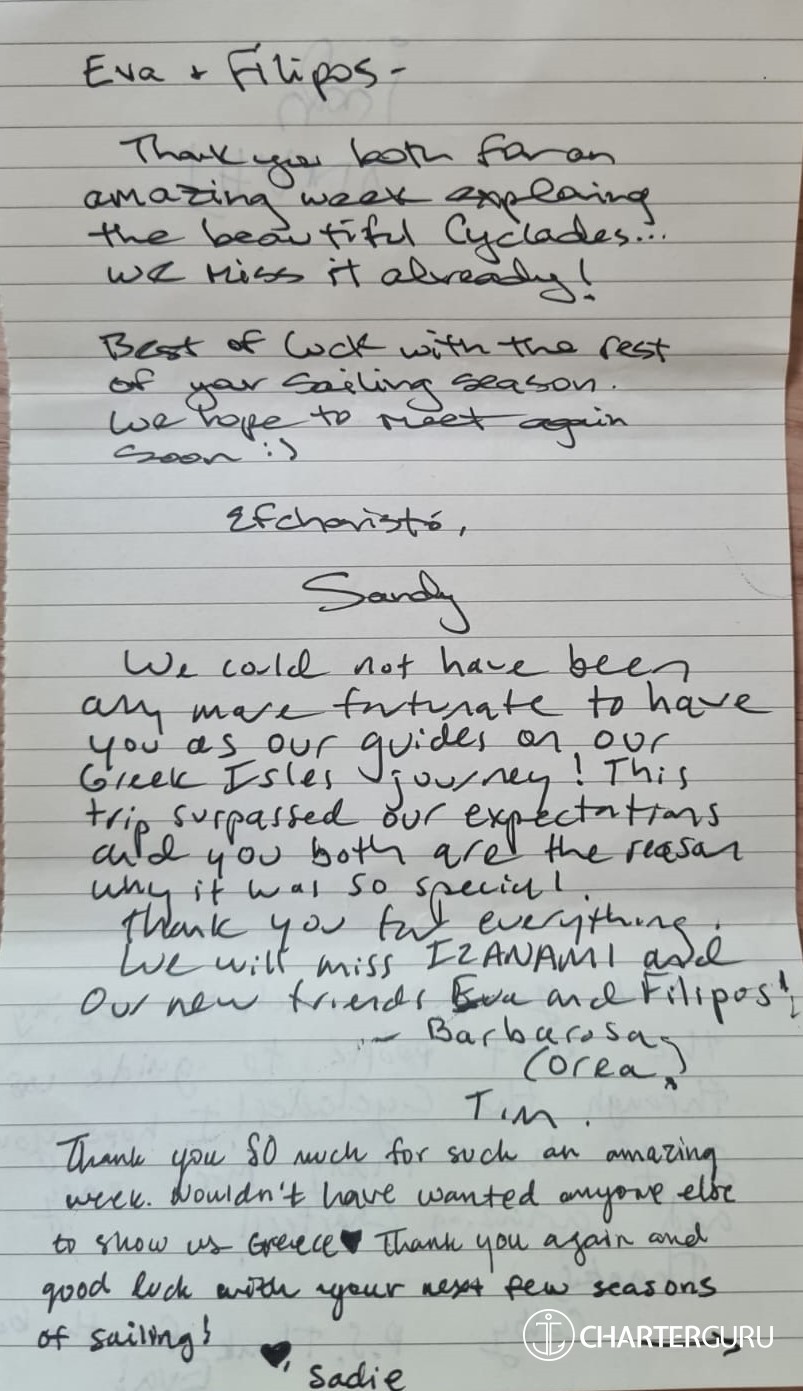 Eva + Filipos -
Thank you both for an
amazing week exploring
the beautiful Cyclades...
we miss it already!
Best of luck with the rest
of your sailing season.
We hope to meet again
soon :)
Efcharistó,
Sandy
We could not have been
any more fortunate to have
you as our guides on our
Greek Isles journey! This
trip surpassed our expectations
and you both are the reason
why it was so special!
Thank you for everything.
We will miss IZANAMI and
our new friends Eva and Filipos!
- Barbarosa
(Orea)
Tim.
Thank you SO much for such an amazing
week. Wouldn't have wanted anyone else
to show us Greece♥ Thank you again and
good luck with your next few seasons
of sailing!
♥, Sadie
CHARTERGURU